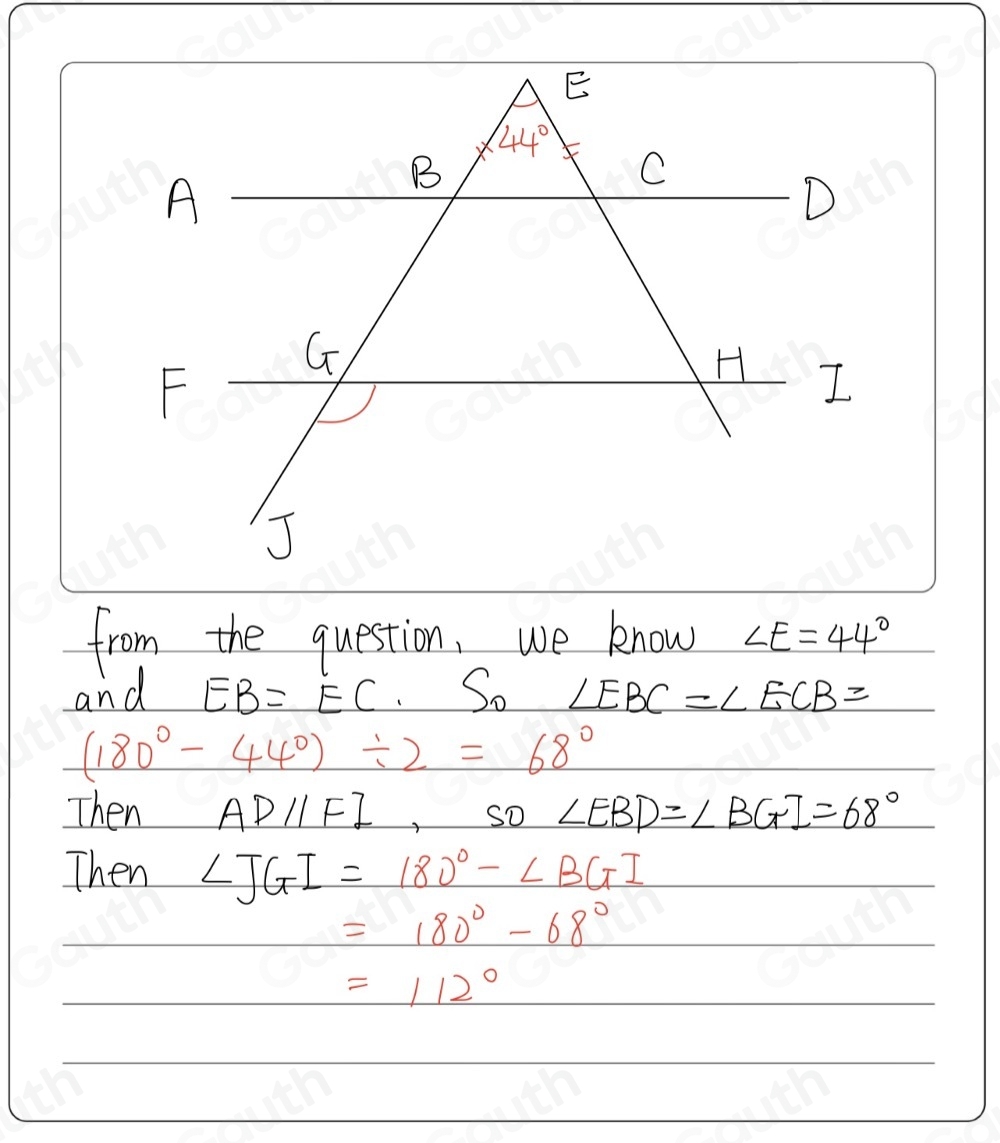 E
44°
B
C
A
D
G
H
F
I
J
from the question, we know ∠E=44°
and EB=EC. So ∠EBC=∠ECB=
(180°-44°)÷2=68°
Then AD//FI, so ∠EBD=∠BGI=68°
Then ∠JGI=180°-∠BGI
=180°-68°
=112°
Gauth